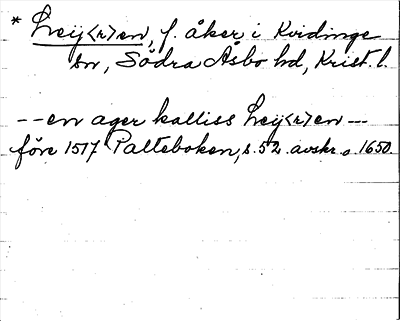 * Leij<r>en, f. åker i Kvidinge
sn, Södra Åsbo hd, Krist. l.
-- en ager kalliss Leij<r>en --
före 1517 Palteboken, s. 52. avskr. o. 1650.